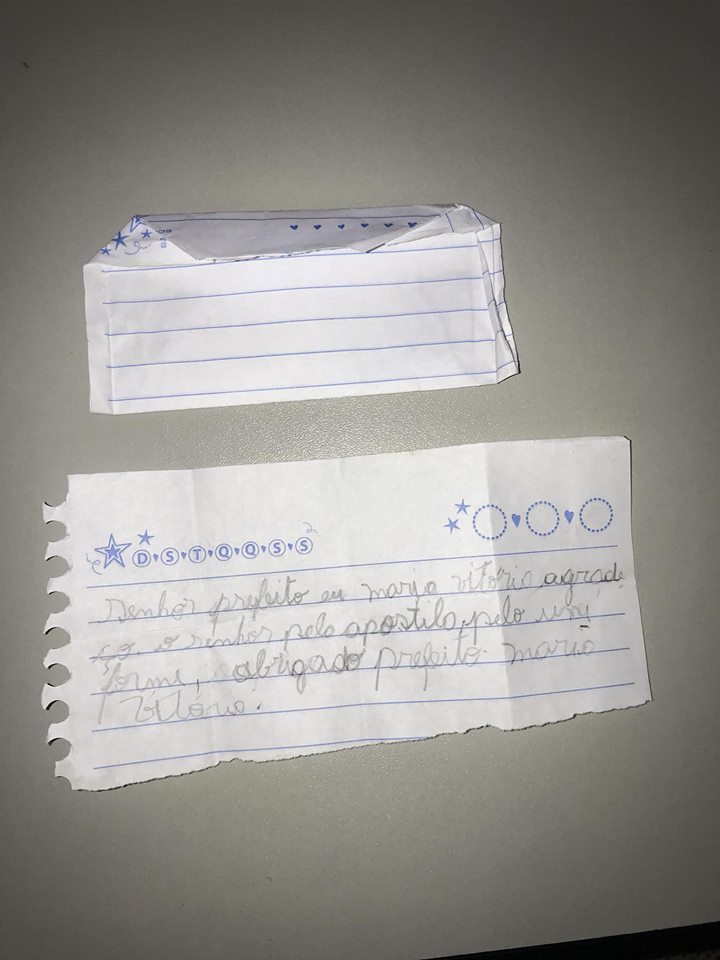 D S T Q Q S S
Senhor prefeito eu maria vitória agrade
ço o senhor pela apostila, pelo uni
forme, obrigado prefeito. maria
Vitória.